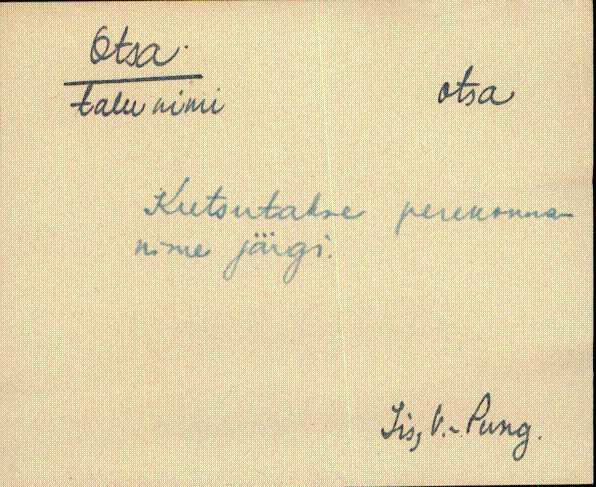 Otsa.
talu nimi otsa
Kutsutakse perekonna-
nime järgi.
Iis, V.-Pung.